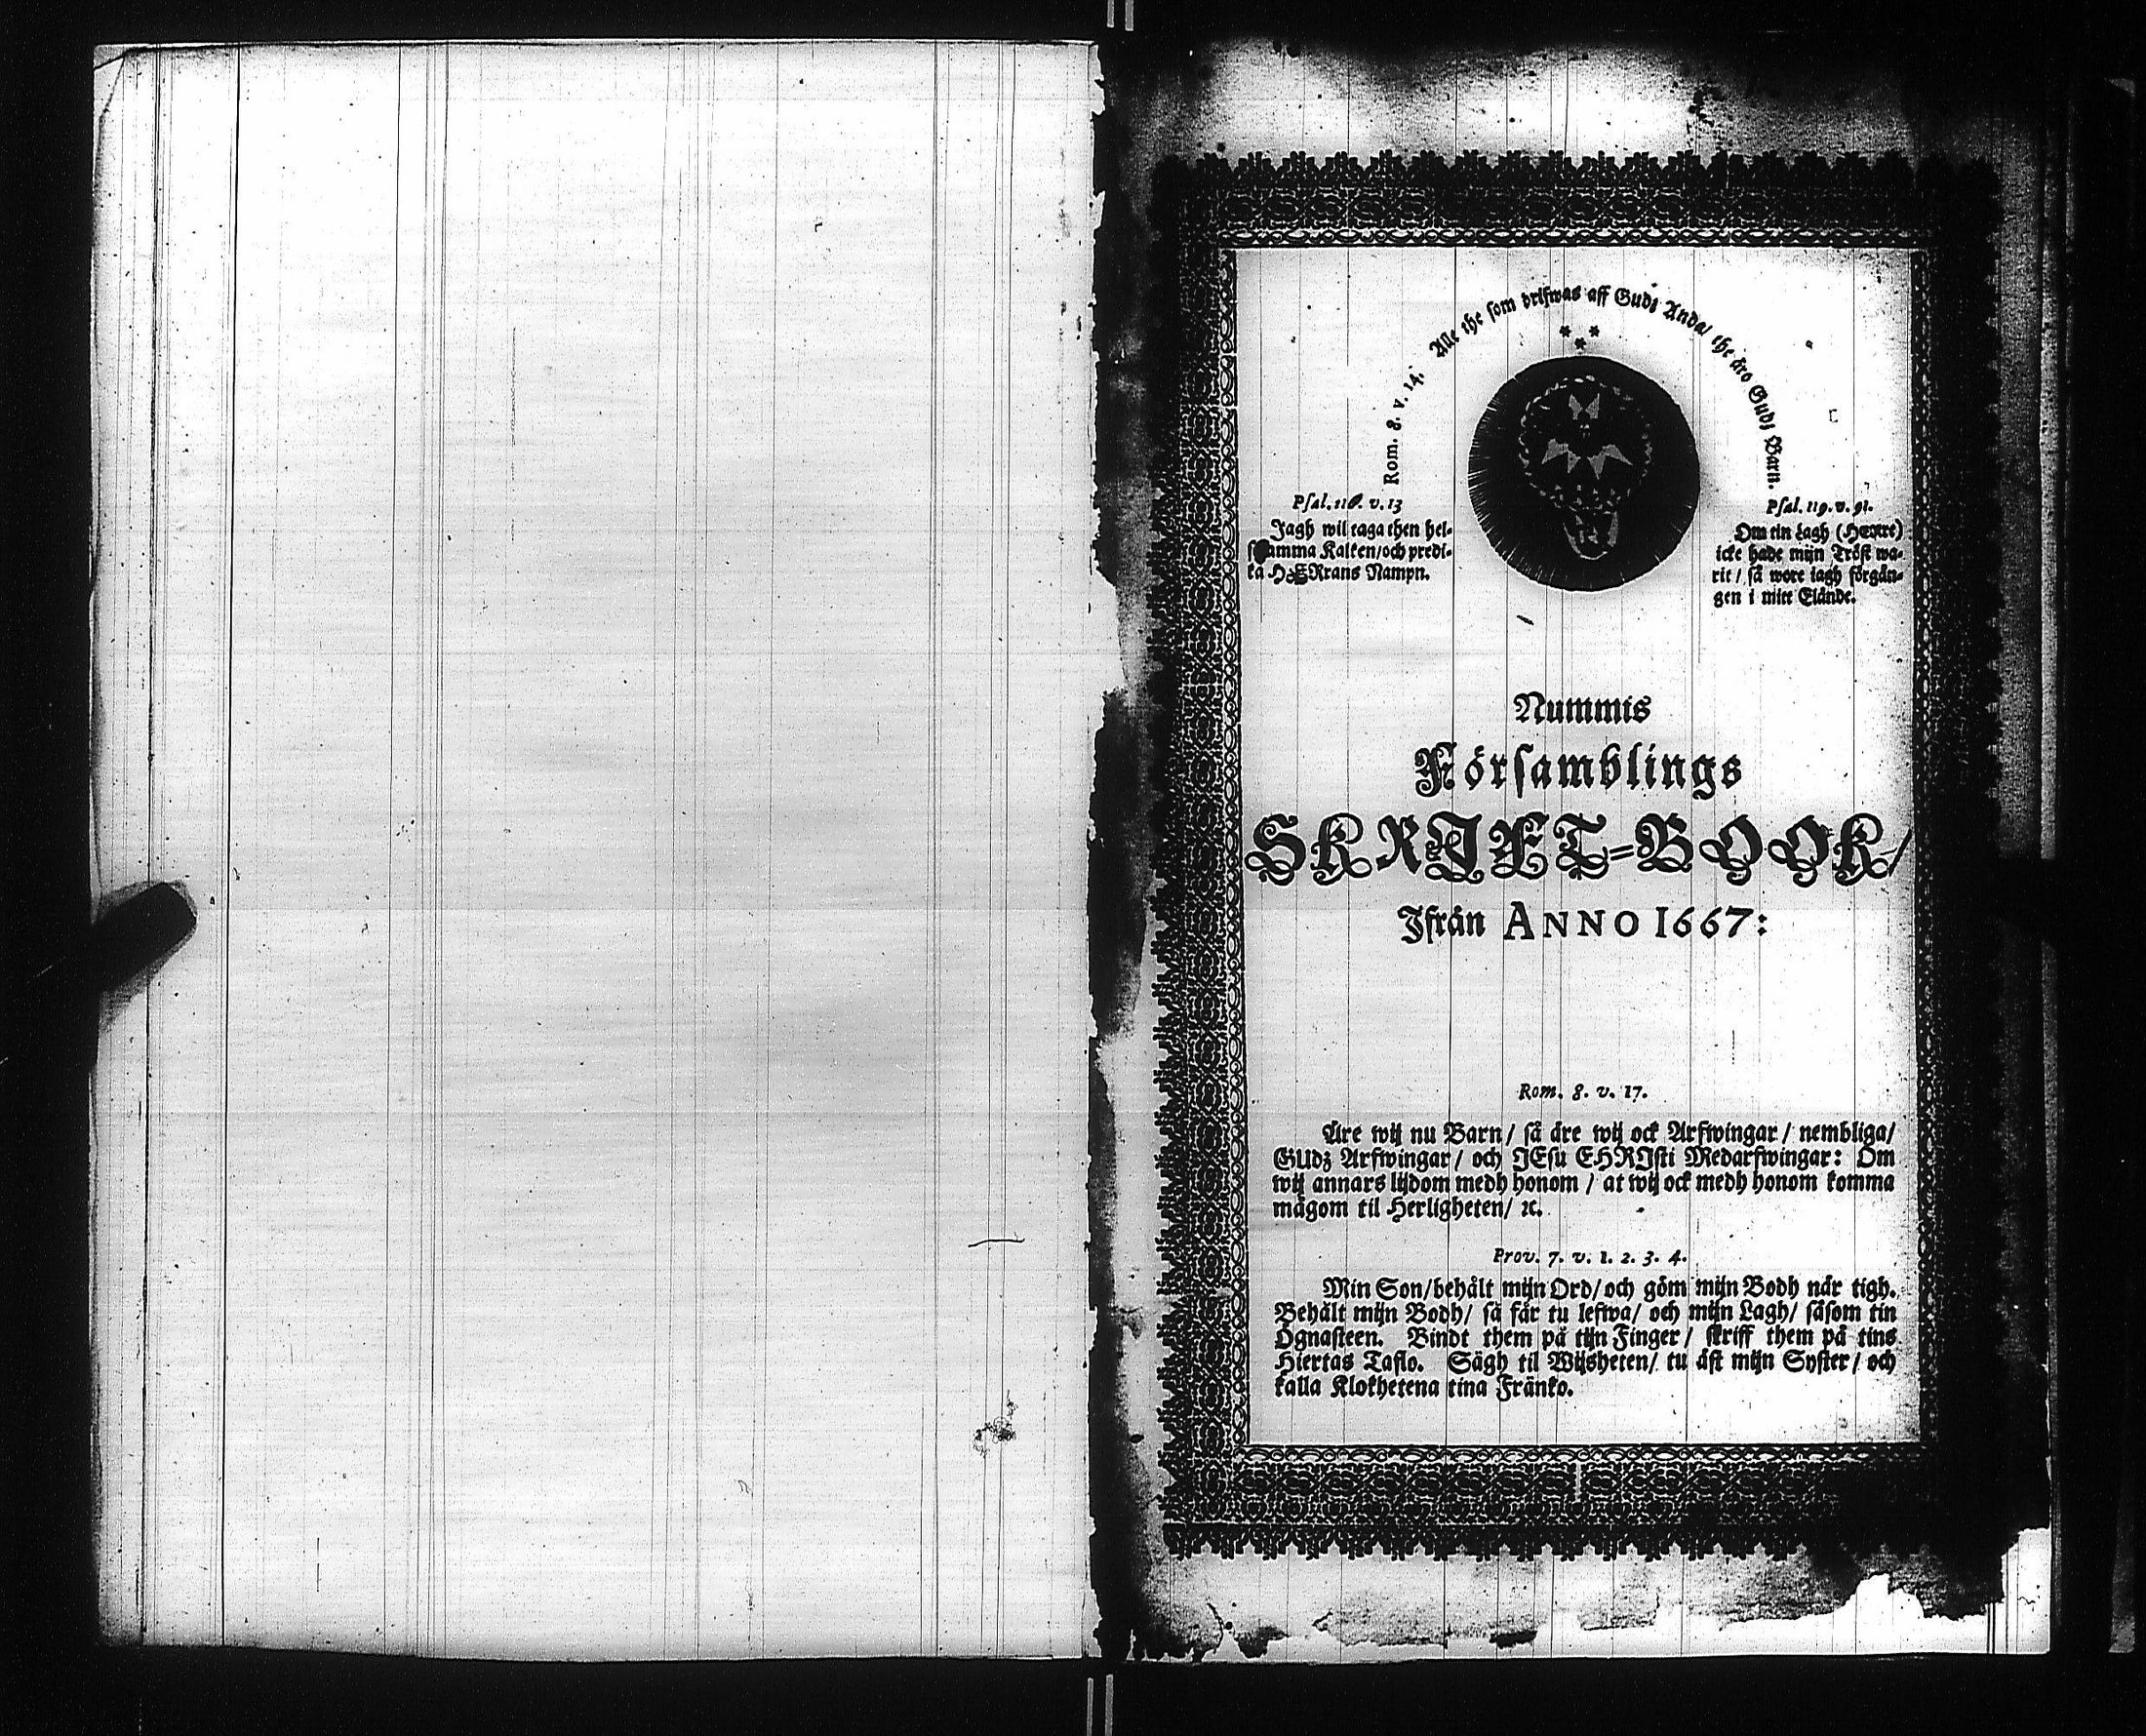 Rom. 8. v. 14. Alle the som drifwas aff Gudz Anda/ the äro Gudz Barn.
Psal. 116. v. 13
Jagh wil taga then hel-
samma Kalken/och predi-
ka HERrans Nampn.
Psal. 119. v. 91.
Om tin Lagh (HErre)
icke hade mijn Tröst wa-
rit / så wore iagh förgån-
gen i mitt Elände.
Nummis
Församblings
SKRIFT=BOOK/
Ifrån ANNO 1667:
Rom. 8. v. 17.
Äre wij nu Barn/ så äre wij ock Arfwingar / nembliga/
GUdz Arfwingar / och JEsu CHRJsti Medarfwingar: Om
wij annars lijdom medh honom / at wij ock medh honom komma
mågom til Herligheten/ ꝛc.
Prov. 7. v. 1. 2. 3. 4.
Min Son/behålt mijn Ord/och göm mijn Bodh när tigh.
Behålt mijn Bodh/ så får tu lefwa/ och mijn Lagh/ såsom tin
Ögnasteen. Bindt them på tijn Finger/ skriff them på tins
Hiertas Taflo. Sägh til Wijsheten/ tu äst mijn Syster/ och
kalla Klokhetena tina Fränko.